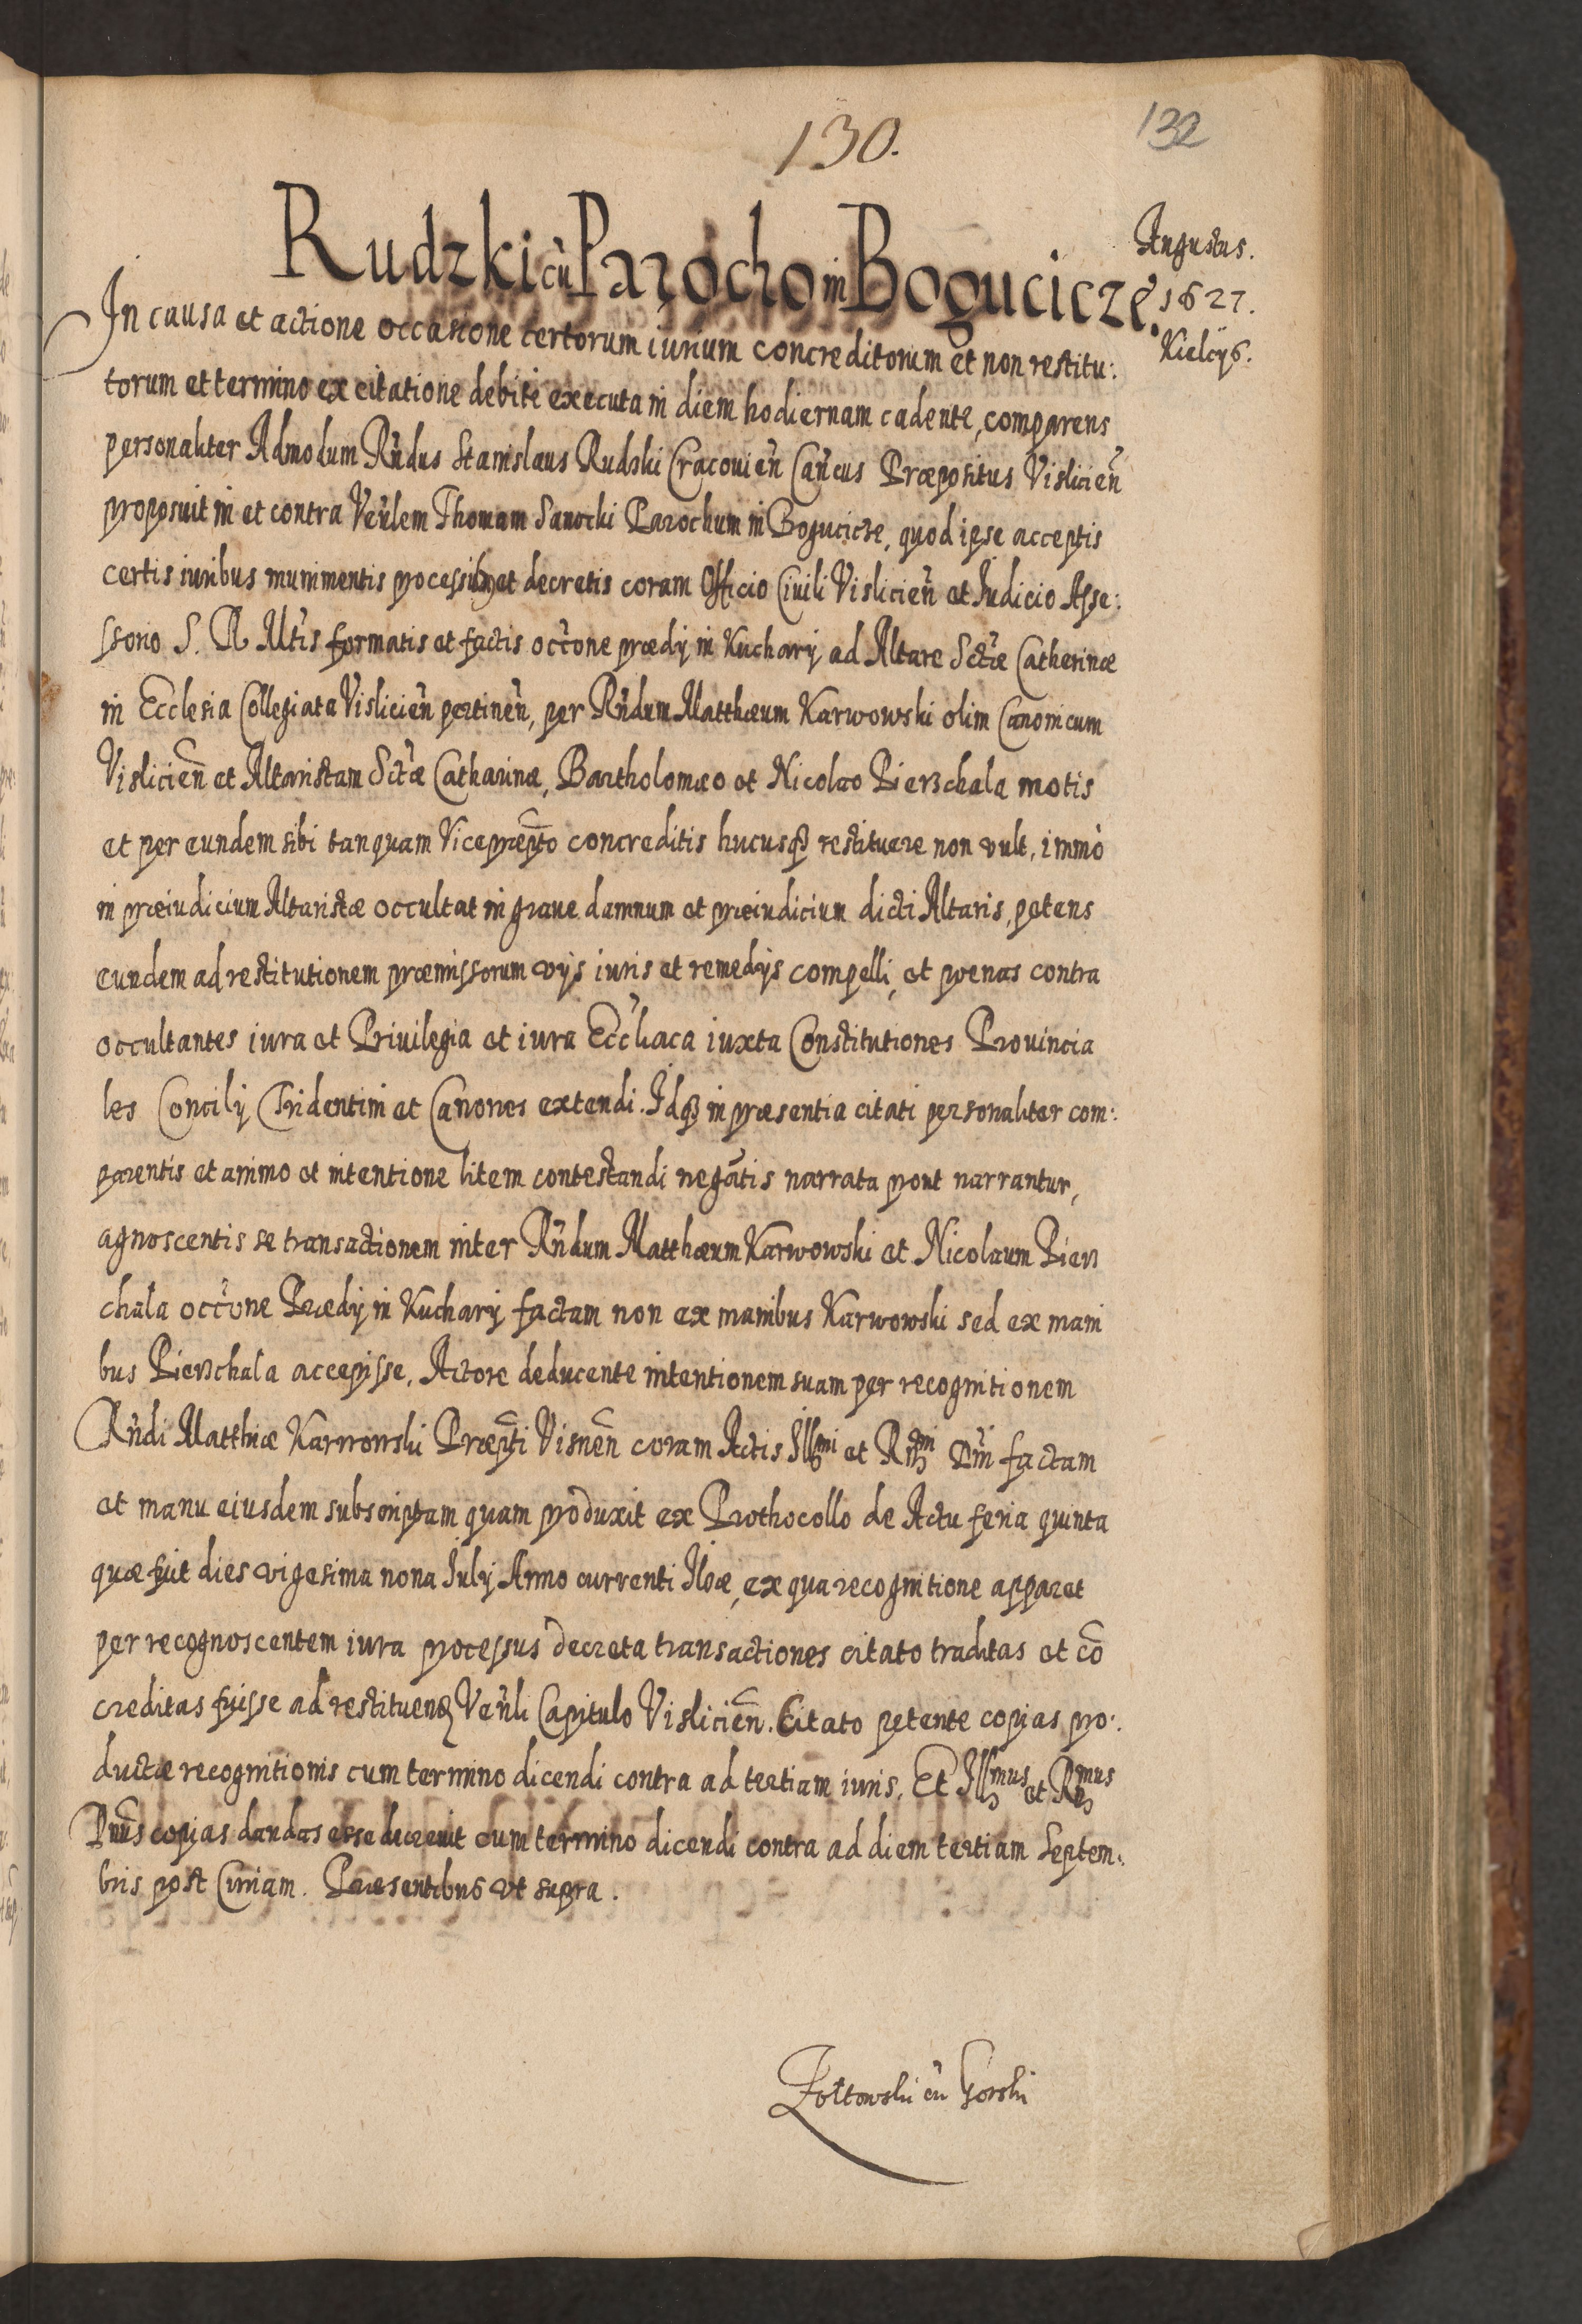 130.
132
Rudzki cũ Parocho in Bogucicze.
Augustus.
1627.
Kielcÿs.
In causa et actione occasione certorum iurium concreditorum et non restitu:
torum et termino ex citatione debite executa in diem hodiernam cadente, comparens
personaliter Admodum Rñdus Stanislaus Rudzki Cracouieñ Cañcus Præpositus Vislicieñ
proposuit in et contra Veñlem Thomam Sanocki Parochum in Bogucicze, quod ipse acceptis
certis iuribus munimentis processibus et decretis coram Officio Ciuili Vislicieñ et Iudicio Asse:
ssorio S. R. Mtis formatis et factis occõne prædij in Kucharÿ ad Altare Sctæ Catherinæ
in Ecclesia Collegiata Vislicieñ pertineñ, per Rñdum Matthæum Karwowski olim Canonicum
Vislicieñ et Altaristam Sctæ Catharinæ, Bartholomæo et Nicolao Pierzchala motis
et per eundem sibi tanquam Viceprepto concreditis hucusq3 restituere non vult, immò
in præiudicium Altaristæ occultat in graue damnum et præiudicium dicti Altaris, petens
eundem ad restitutionem præmissorum vijs iuris et remedijs compelli, et pœnas contra
occultantes iura et Priuilegia et iura Eccliaca iuxta Constitutiones Prouincia
les Concilij Tridentini et Canones extendi. Idq3 in præsentia citati personaliter com:
parentis et animo et intentione litem contestandi negãtis narrata prout narrantur,
agnoscentis se transactionem inter Rñdum Matthæum Karwowski et Nicolaum Pierz
chala occõne Prædij in Kucharÿ factam non ex manibus Karwowski sed ex mani
bus Pierzchala accepisse. Actore deducente intentionem suam per recognitionem
Rñdi Matthiæ Karwowski Præpti Visneñ coram Actis Illmi et Rmi Dñi factam
et manu eiusdem subscriptam quam produxit ex Prothocollo de Actu feria quinta
quæ fuit dies vigesima nona Iulij Anno currenti , ex qua recognitione apparet
per recognoscentem iura processus decreta transactiones citato traditas et cõ
creditas fuisse ad restituend Veñli Capitulo Vislicieñ. Citato petente copias pro:
ductæ recognitionis cum termino dicendi contra ad tertiam iuris. Et Illmus et Rmus
Dñus copias dandas esse decreuit cum termino dicendi contra ad diem tertiam Septem:
bris post Curiam. Præsentibus vt supra.
Zołtowski cũ Gorski